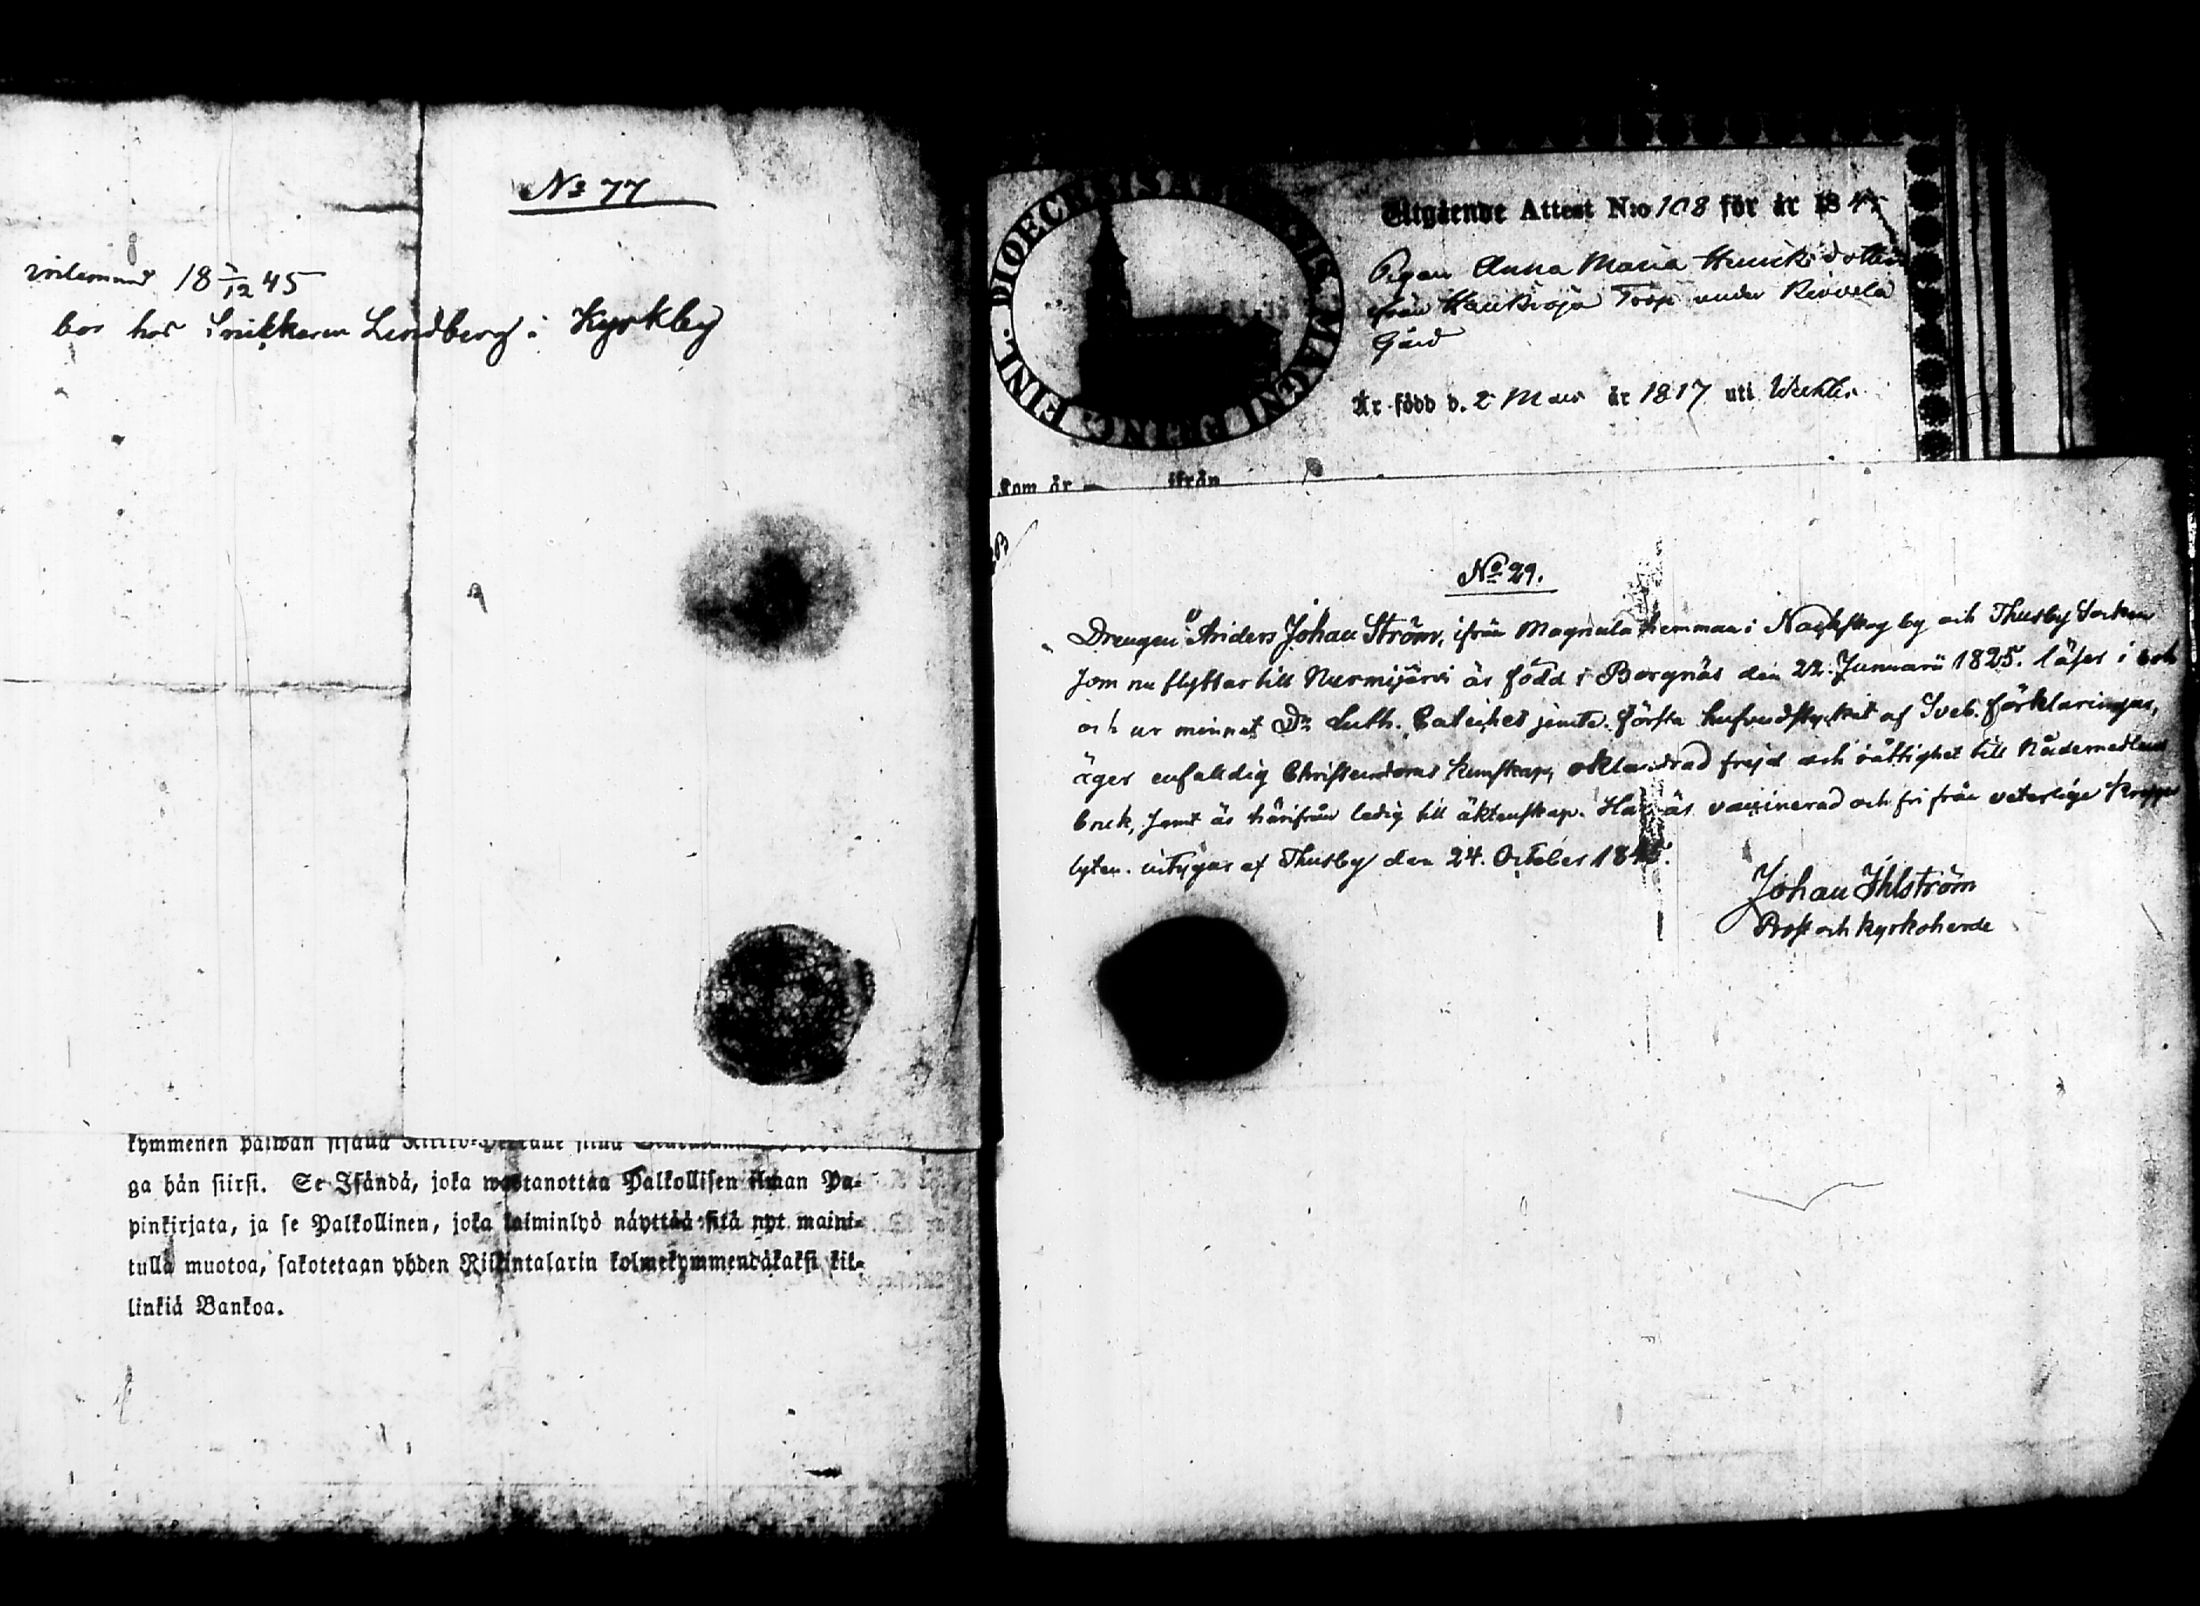 No 77
18 7/12 45
bor hos Snikkaren Lindberg i Kyrkby
ga hän siirsi. Se Isändä, joka wastanottaa Palkollisen ilman Pa-
pinkirjata, ja se Palkollinen, joka laiminlyö näyttää sitä nyt maini-
tulla muotoa, sakotetaan yhden Riikintalarin kolmekymmendäkaksi kil-
linkiä Bankoa.
DIOECESIS MAGNI PRINC. FINL.
Utgående Attest N:o 108 för år 184
Pigan Anna Maria Henriksdotter
från Haukioja Torp under
Gård
Är född d. 2 Mars år 1817 uti
Kom år — ifrån
No 29.
Drengen Anders Johan Ström, ifrån Magnula hemman i Nackskog by och Thusby Socken
som nu flyttar till Nurmijärvi är född i Borgnäs den 22. Januarii 1825. läser i bok
och ur minnet Dr Luth. Cateches jemte första hufvudstycket af Sveb. förklaringar,
äger enfaldig Christendoms kunskap, oklandrad frejd och rättighet till Nådemedlens
bruk, samt är härifrån ledig till äktenskap. Han är vaccinerad och fri från veterlige kropps
lyten. intygar af Thusby den 24. October 1845.
Johan Ihlström
Prost och Kyrkoherde